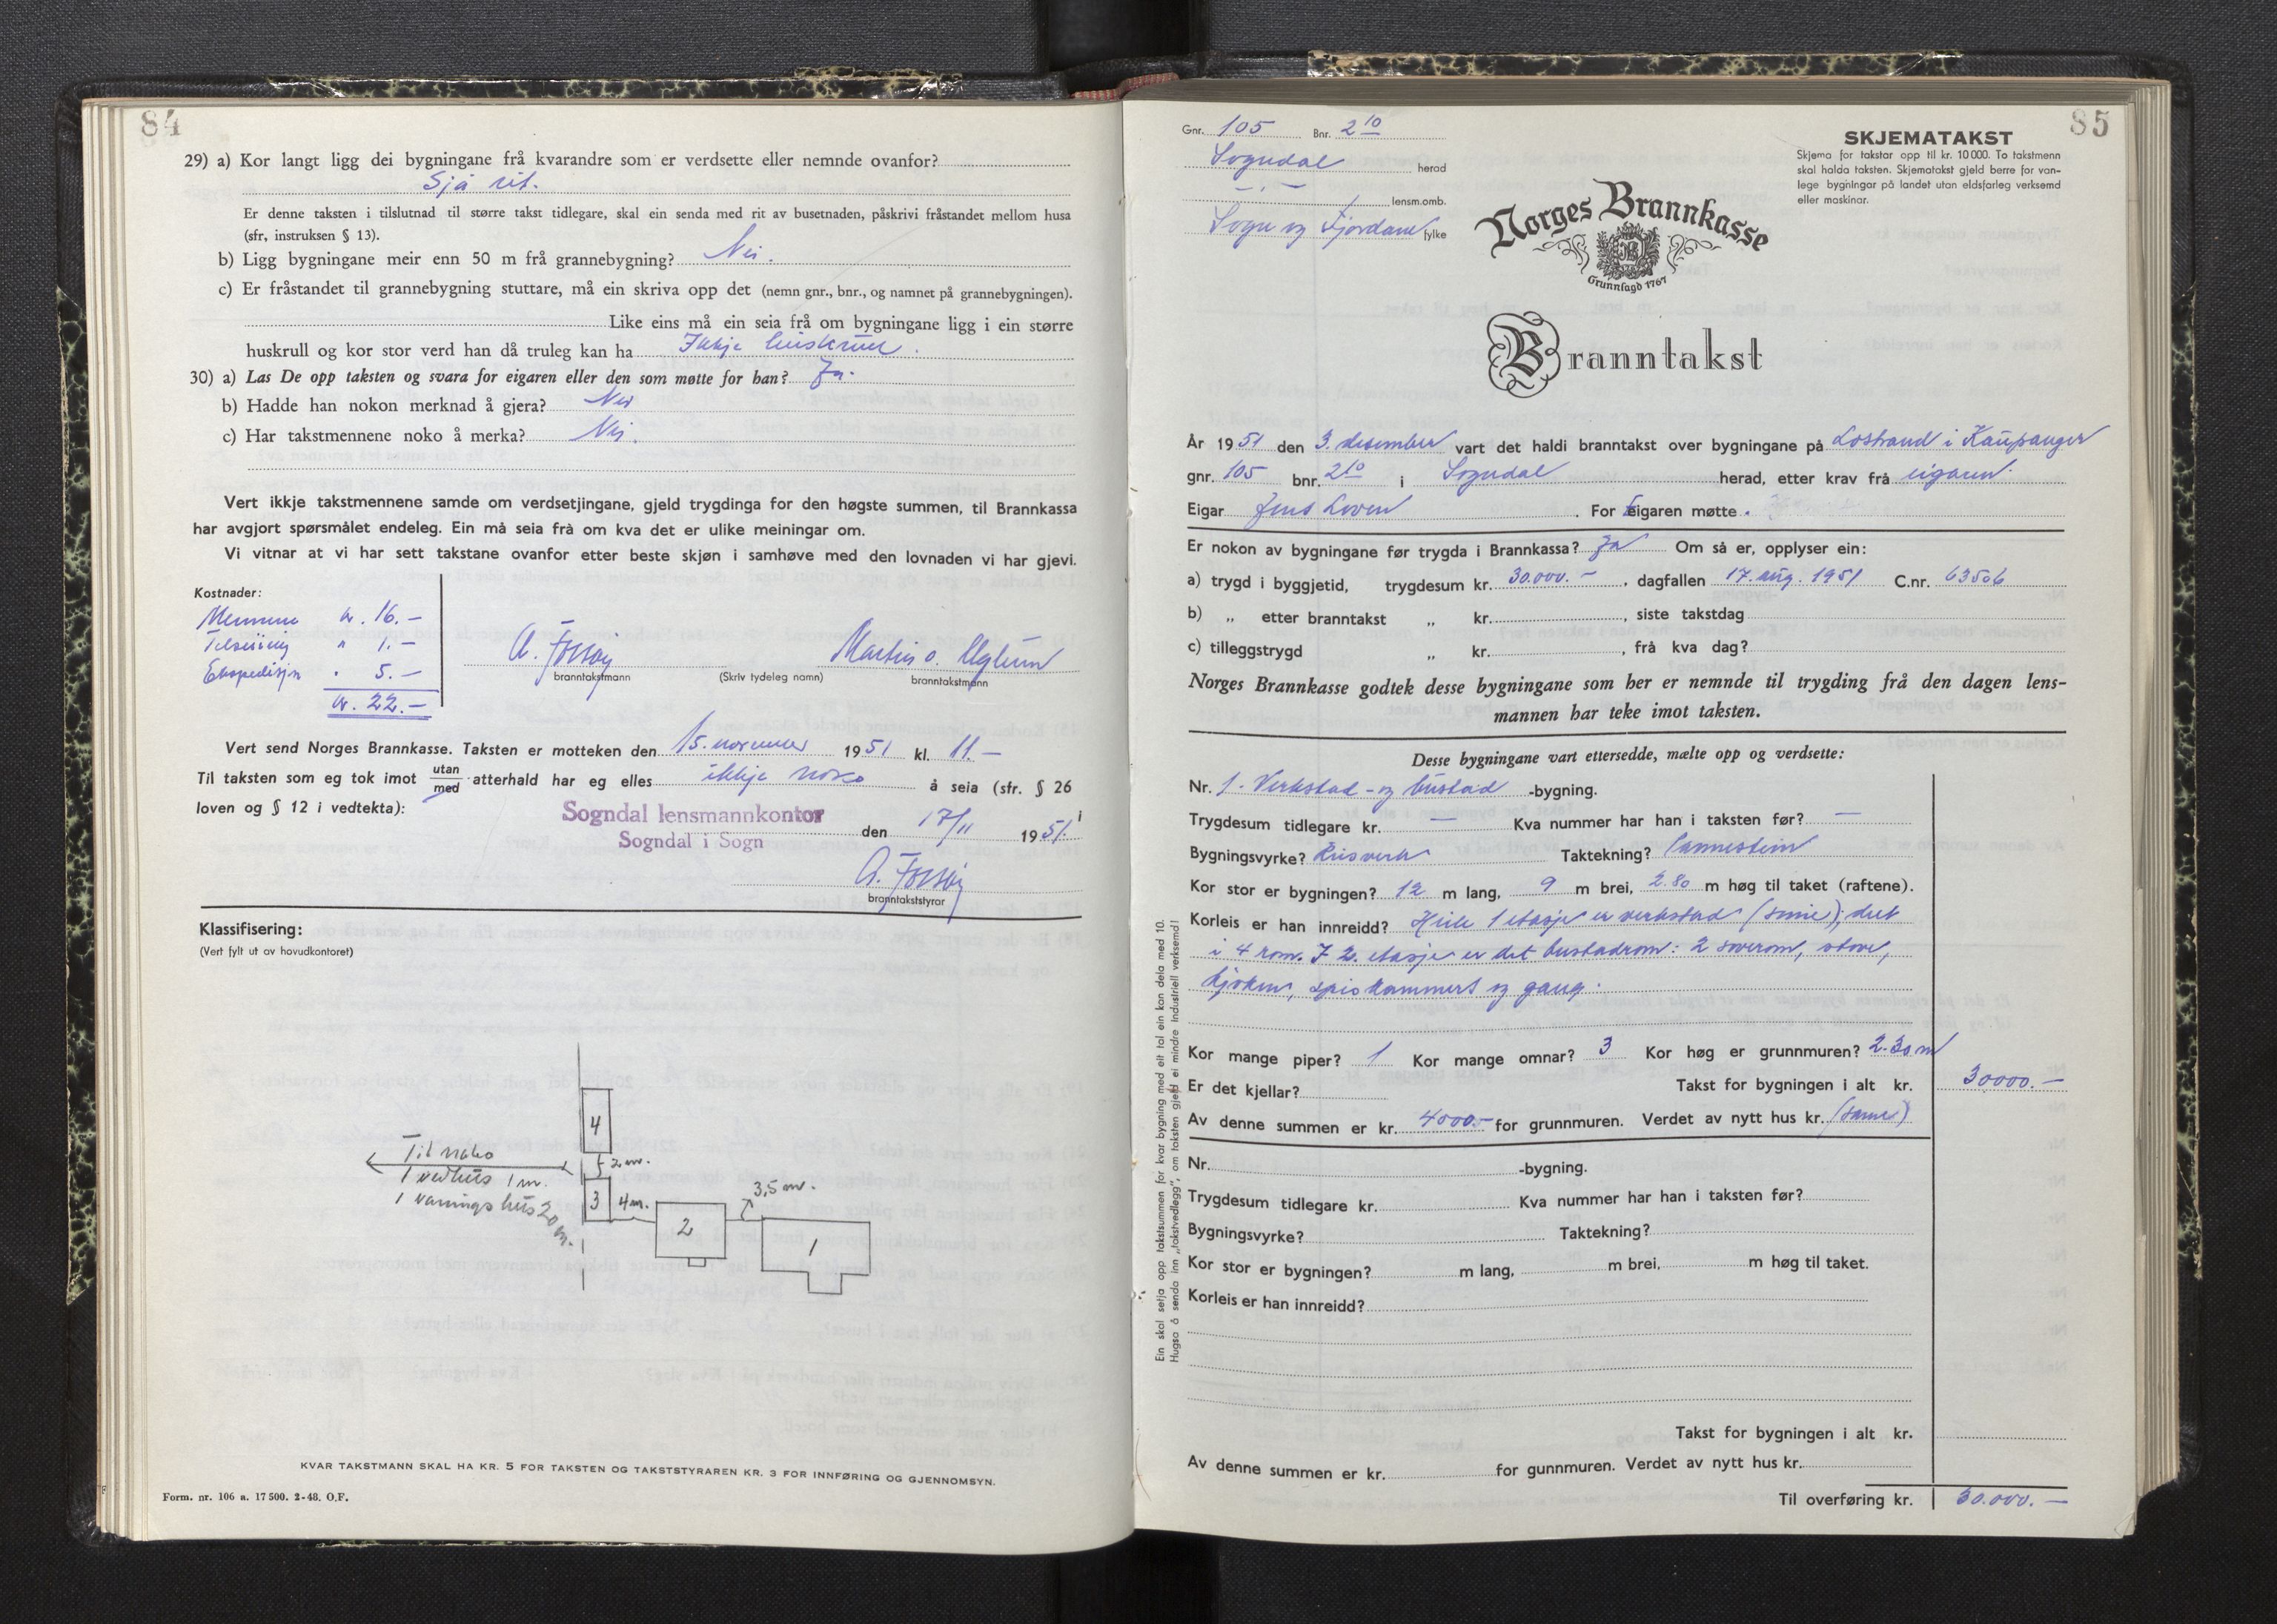 84
29) a) Kor langt ligg dei bygningane frå kvarandre som er verdsette eller nemnde ovanfor?
Sjå rit.
Er denne taksten i tilslutnad til større takst tidlegare, skal ein senda med rit av busetnaden, påskrivi fråstandet mellom husa
(sfr, instruksen § 13).
b) Ligg bygningane meir enn 50 m frå grannebygning? Nei.
c) Er fråstandet til grannebygning stuttare, må ein skriva opp det (nemn gnr., bnr., og namnet på grannebygningen).
Like eins må ein seia frå om bygningane ligg i ein større
huskrull og kor stor verd han då truleg kan ha Ikkje huskrull.
30) a) Las De opp taksten og svara for eigaren eller den som møtte for han? Ja.
b) Hadde han nokon merknad å gjera? Nei
c) Har takstmennene noko å merka? Nei.
Vert ikkje takstmennene samde om verdsetjingane, gjeld trygdinga for den høgste summen, til Brannkassa
har avgjort spørsmålet endeleg. Ein må seia frå om kva det er ulike meiningar om.
Vi vitnar at vi har sett takstane ovanfor etter beste skjøn i samhøve med den lovnaden vi har gjevi.
Kostnader:
Mennene kr. 16.—
" 1.—
Ekspedisjon " 5.—
kr. 22.—
branntakstmann (Skriv tydeleg namn) branntakstmann
Vert send Norges Brannkasse. Taksten er motteken den 15. november 1951 kl. 11.—
Til taksten som eg tok imot utan/med atterhald har eg elles ikkje noko å seia (sfr. § 26
loven og § 12 i vedtekta):
Sogndal lensmannkontor
Sogndal i Sogn
den 17/11 1951.
branntakststyrar
Klassifisering:
(Vert fylt ut av hovudkontoret)
4
2 m.
Til nabo
1 vedhus 1 m.
1 våningshus 20 m.
3 4 m.
2
3,5 m.
1
KVAR TAKSTMANN SKAL HA KR. 5 FOR TAKSTEN OG TAKSTSTYRAREN KR. 3 FOR INNFØRING OG GJENNOMSYN.
Form. nr. 106 a. 17 500. 2-48. O.F.
85
Gnr. 105 Bnr. 210
Sogndal herad
— " — lensm.omb.
Sogn og Fjordane fylke
SKJEMATAKST
Skjema for takstar opp til kr. 10 000. To takstmenn
skal halda taksten. Skjematakst gjeld berre for van-
lege bygningar på landet utan eldsfarleg verksemd
eller maskinar.
Norges Brannkasse
Grunnlagd 1767
Branntakst
År 1951 den 3. desember vart det haldi branntakst over bygningane på Lostrand i Kaupanger
gnr. 105 bnr. 210 i Sogndal herad, etter krav frå eigaren.
Eigar Jens Loven. For Eigaren møtte.
Er nokon av bygningane før trygda i Brannkassa? Ja Om så er, opplyser ein:
a) trygd i byggjetid, trygdesum kr. 30.000.—, dagfallen 17. aug. 1951 C.nr. 63506
b) „ etter branntakst „ kr., siste takstdag
c) tilleggstrygd „ kr., frå kva dag?
Norges Brannkasse godtek desse bygningane som her er nemnde til trygding frå den dagen lens-
mannen har teke imot taksten.
Desse bygningane vart ettersedde, mælte opp og verdsette:
Nr. 1. Verkstad- og bustad -bygning.
Trygdesum tidlegare kr. — Kva nummer har han i taksten før? —
Bygningsvyrke? Reisverk Taktekning? Cementstein
Kor stor er bygningen? 12 m lang, 9 m brei, 2.80 m høg til taket (raftene).
Korleis er han innreidd? Heile 1 etasje er verkstad (smie); delt
i 4 rom. I 2. etasje er det bustadrom: 2 soverom, stove,
kjøken, spiskammers og gang.
Kor mange piper? 1 Kor mange omnar? 3 Kor høg er grunnmuren? 2.30 m
Er det kjellar? Takst for bygningen i alt kr. 30000.—
Av denne summen er kr. 4000.— for grunnmuren. Verdet av nytt hus kr. (same)
Nr. -bygning.
Trygdesum tidlegare kr. Kva nummer har han i taksten før?
Bygningsvyrke? Taktekning?
Kor stor er bygningen? m lang, m brei, m høg til taket.
Korleis er han innreidd?
Takst for bygningen i alt kr.
Av denne summen er kr. for gunnmuren. Verdet av nytt hus kr.
Til overføring kr. 30.000.—
Ein skal setja opp takstsummen for kvar bygning med eit tal ein kan dela med 10.
Hugsa å senda inn „takstvedlegg", om taksten gjeld ei mindre industriell verksemd!